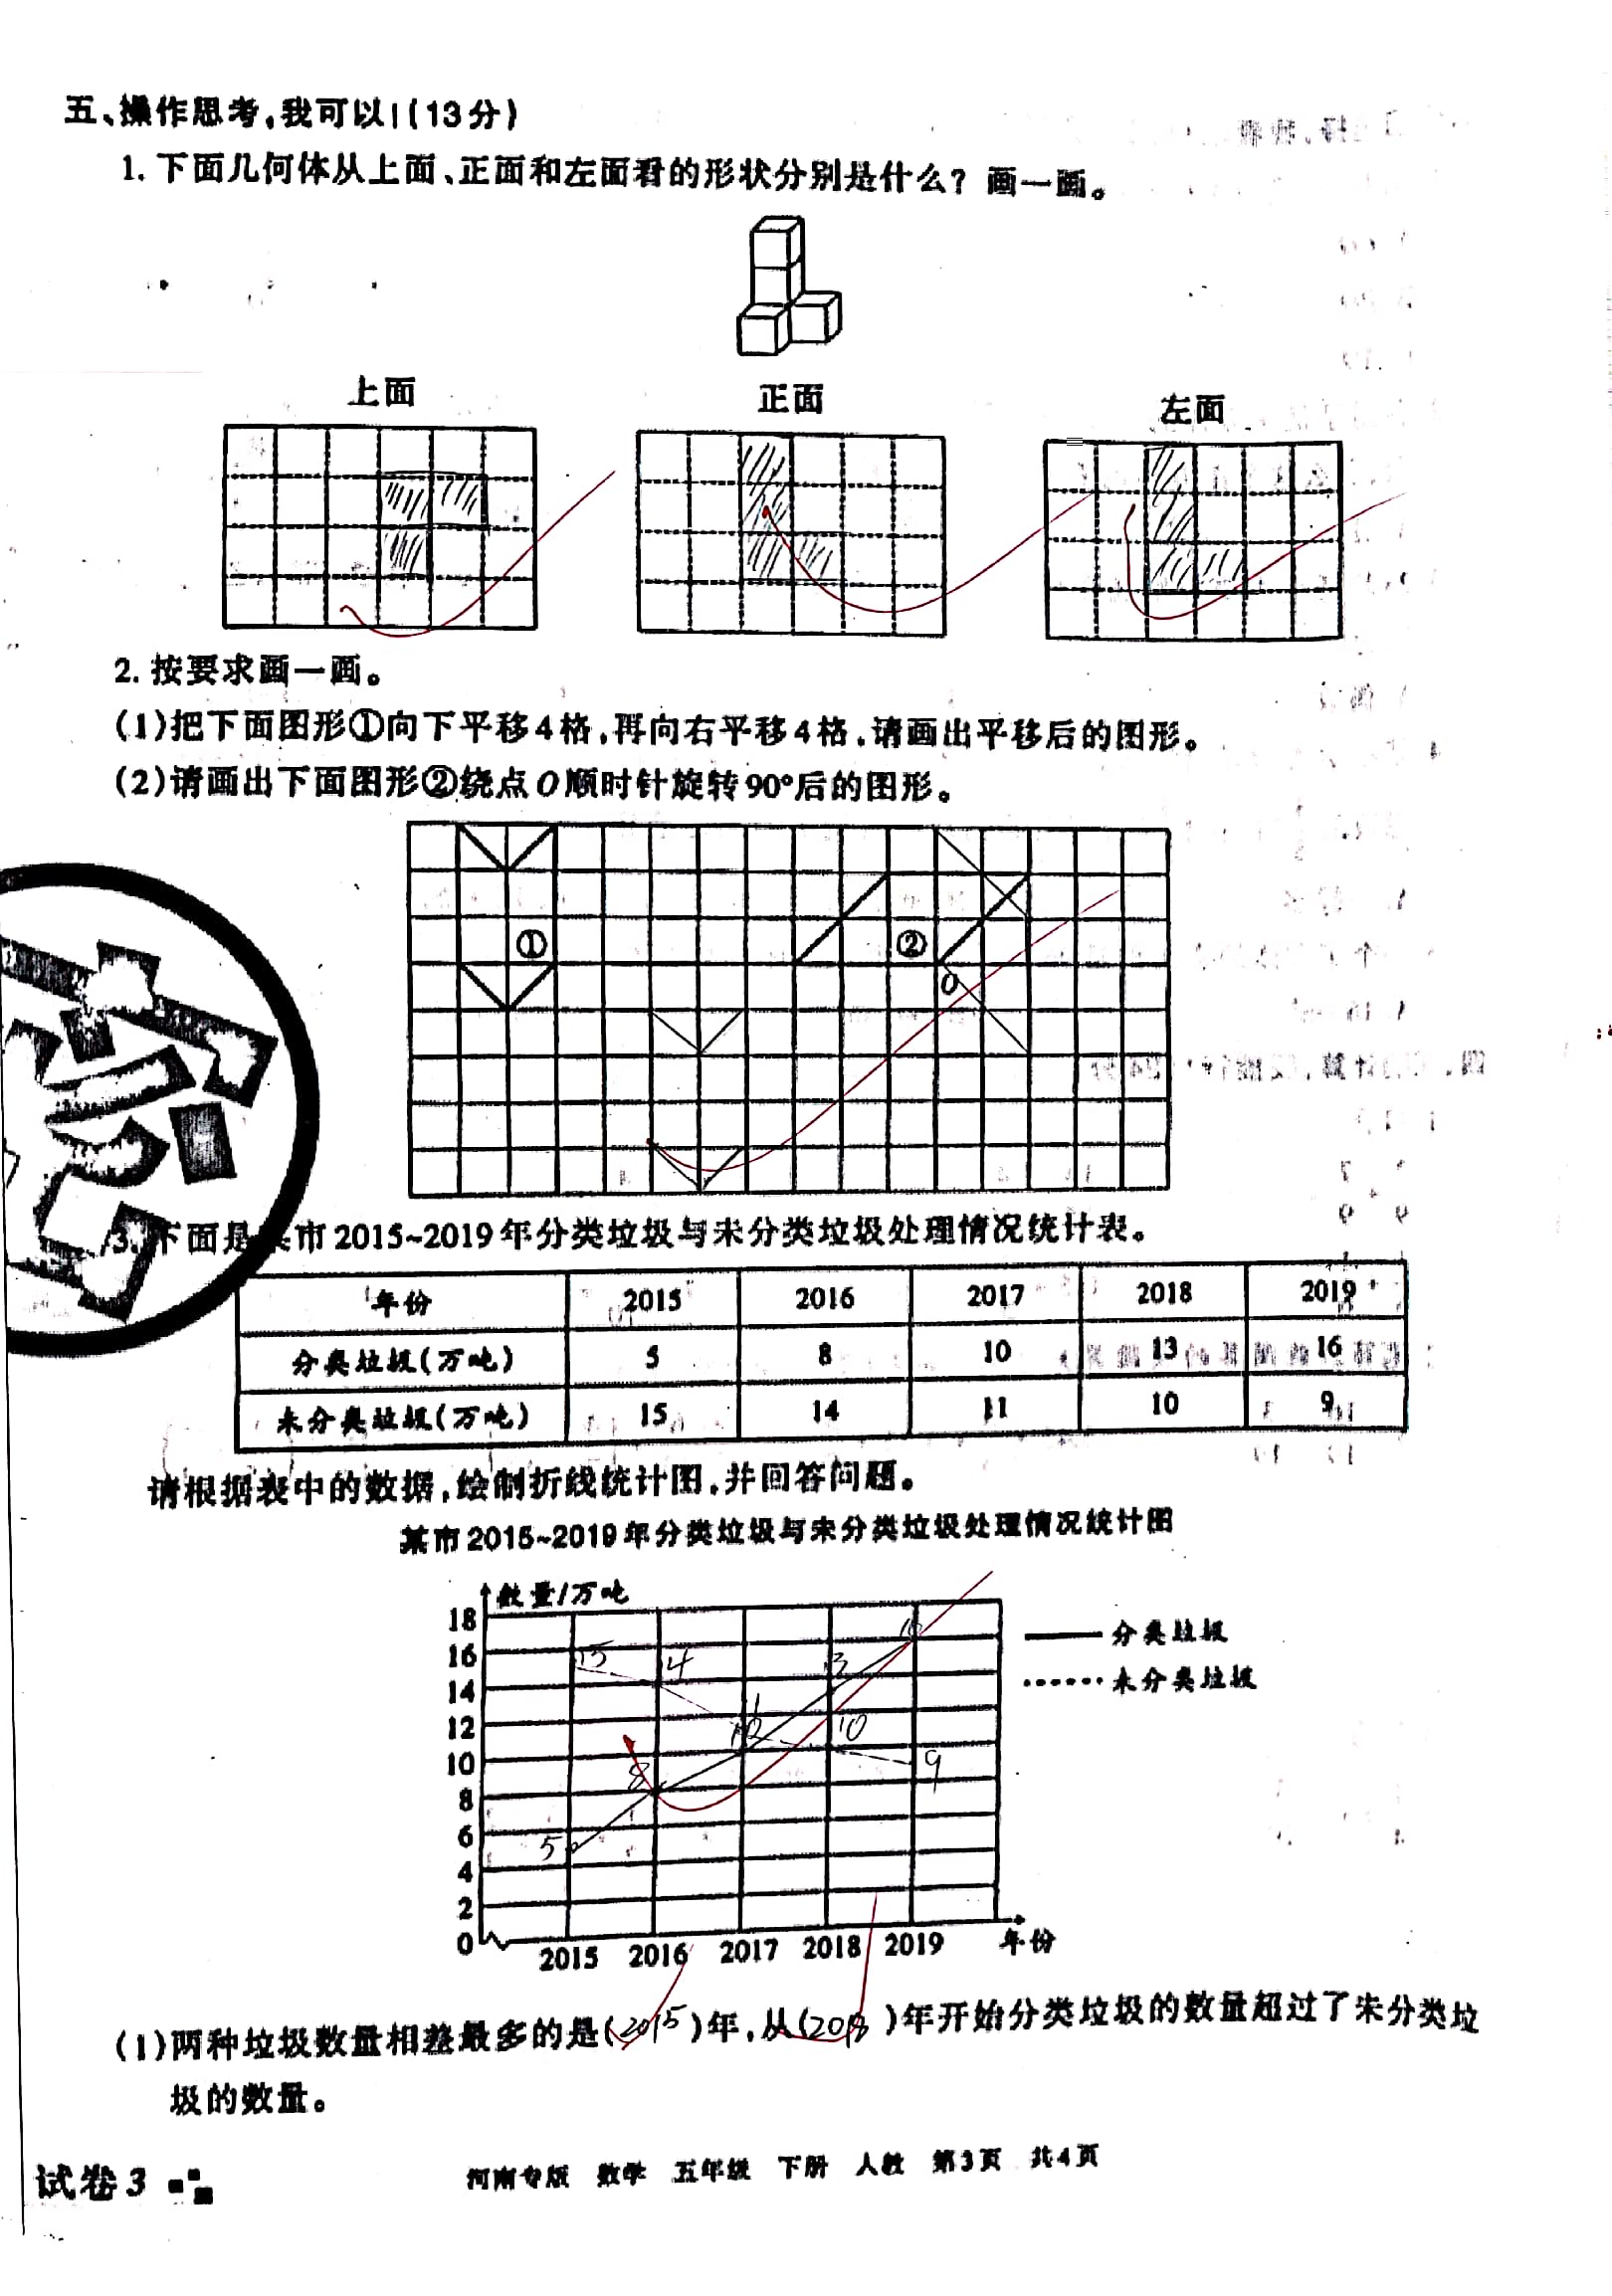 五、操作思考,我可以!(13分)
1. 下面几何体从上面、正面和左面看的形状分别是什么? 画一画。
上面 正面 左面
2. 按要求画一画。
(1)把下面图形①向下平移4格,再向右平移4格,请画出平移后的图形。
(2)请画出下面图形②绕点O顺时针旋转90°后的图形。
① ②
O
3. 下面是某市2015~2019年分类垃圾与未分类垃圾处理情况统计表。
年份 2015 2016 2017 2018 2019
分类垃圾(万吨) 5 8 10 13 16
未分类垃圾(万吨) 15 14 11 10 9
请根据表中的数据,绘制折线统计图,并回答问题。
某市2015~2019年分类垃圾与未分类垃圾处理情况统计图
数量/万吨
18
16 15 14 13 16
14
12 11
10 10 10 9
8 8
6 5
4
2
0
2015 2016 2017 2018 2019 年份
分类垃圾
未分类垃圾
(1)两种垃圾数量相差最多的是(2015)年,从(2018)年开始分类垃圾的数量超过了未分类垃
圾的数量。
试卷3
河南专版 数学 五年级 下册 人教 第3页 共4页